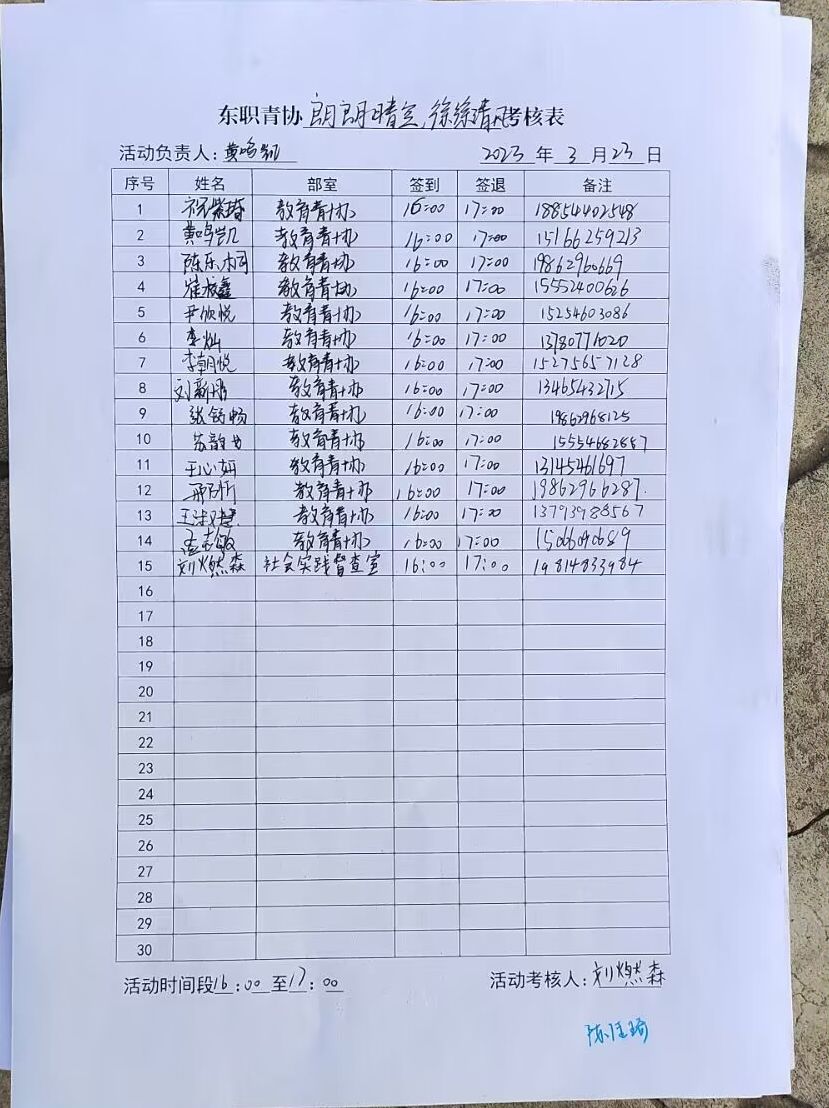 东职青协 朗朗晴空,徐徐清风考核表
活动负责人: 黄鸣凯 2023 年 3 月 23 日
序号 姓名 部室 签到 签退 备注
1 祝紫琦 教育青协 16:00 17:00 18854402548
2 黄鸣凯 教育青协 16:00 17:00 15166259213
3 陈乐 教育青协 16:00 17:00 19862960669
4 崔淑鑫 教育青协 16:00 17:00 15552400626
5 尹欣悦 教育青协 16:00 17:00 15254603086
6 李灿 教育青协 16:00 17:00 13780771020
7 李朝悦 教育青协 16:00 17:00 15275657128
8 刘新 教育青协 16:00 17:00 13465432715
9 张舒畅 教育青协 16:00 17:00 19862968125
10 教育青协 16:00 17:00 15554682887
11 王心妍 教育青协 16:00 17:00 13145461697
12 教育青协 16:00 17:00 19862966287.
13 教育青协 16:00 17:00 13793988567
14 孟志敏 教育青协 16:00 17:00 15066090689
15 刘燃森 社会实践督查室 16:00 17:00 19814833984
16
17
18
19
20
21
22
23
24
25
26
27
28
29
30
活动时间段16:00至17:00 活动考核人: 刘燃森
陈佳琦